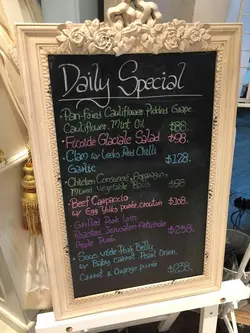 Daily Special
Pan-Fried Cauliflower Pickled Grape
Cauliflower Mint Oil $88.
Ficoide Glaciale Salad $98.
Clam w/ Leeks Red Chilli
Garlic $128.
Chicken Consommé, Asparagus
Mixed Vegetable Balls $98
Beef Carpaccio $108.
w/ Egg Yolks purée, crouton
Grilled Pork Loin
Roasted Jerusalem Artichoke $258.
Apple
Sous vide Pork Belly
w/ Baby Carrot Pearl Onion,
Carrot & Orange purée $238.